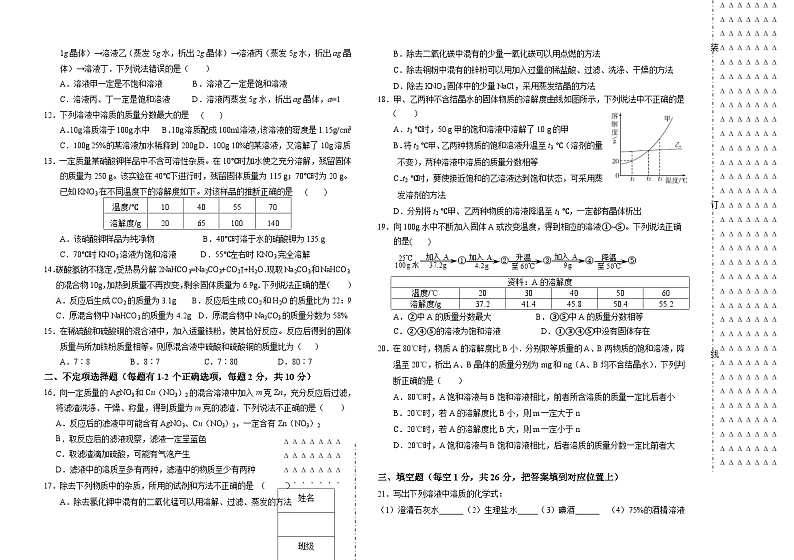 1g晶体）→溶液乙（蒸发5g水，析出2g晶体）→溶液丙（蒸发5g水，析出ag晶
体）→溶液丁。下列说法错误的是（　　）
A．溶液甲一定是不饱和溶液　　B．溶液乙一定是饱和溶液
C．溶液丙、丁一定是饱和溶液　　D．溶液丙蒸发5g水，析出ag晶体，a=1
12．下列溶液中溶质的质量分数最大的是　（　　）
A.10g溶质溶于100g水中　B.10g溶质配成100ml溶液，该溶液的密度是1.15g/cm³
C．100g 25%的某溶液加水稀释到200g D．100g 10%的某溶液，又溶解了10g溶质
13．一定质量某硝酸钾样品中不含可溶性杂质。在10℃时加水使之充分溶解，残留固体
的质量为250 g。该实验在40℃下进行时，残留固体质量为115 g；70℃时为20 g。
已知KNO3在不同温度下的溶解度如下。对该样品的推断正确的是　（　　）
温度/℃　10　40　55　70
溶解度/g　20　65　100　140
A．该硝酸钾样品为纯净物　　B．40℃时溶于水的硝酸钾为135 g
C．70℃时KNO3溶液为饱和溶液　　D．55℃左右时KNO3完全溶解
14.碳酸氢钠不稳定，受热易分解2NaHCO3=Na2CO3+CO2↑+H2O.现取Na2CO3和NaHCO3
的混合物10g，加热到质量不再改变，剩余固体质量为6.9g。下列说法正确的是（　　）
A．反应后生成CO2的质量为3.1g　B．反应后生成CO2和H2O的质量比为22：9
C．原混合物中NaHCO3的质量为4.2g　D．原混合物中Na2CO3的质量分数为58%
15．在稀硫酸和硫酸铜的混合液中，加入适量铁粉，使其恰好反应。反应后得到的固体
质量与所加铁粉质量相等。则原混合液中硫酸和硫酸铜的质量比为（　　）
A．7：8　　B．8：7　　C．7：80　　D．80：7
二、不定项选择题（每题有1-2个正确选项，每题2分，共10分）
16．向一定质量的AgNO3和Cu（NO3）2的混合溶液中加入m克Zn，充分反应后过滤，
将滤渣洗涤、干燥、称量，得到质量为m克的滤渣．下列说法不正确的是（　　）
A．反应后的滤液中可能含有AgNO3、Cu（NO3）2，一定含有Zn（NO3）2
B．取反应后的滤液观察，滤液一定呈蓝色
C．取滤渣滴加硫酸，可能有气泡产生
D．滤液中的溶质至多有两种，滤渣中的物质至少有两种
17．除去下列物质中的杂质，所用的试剂和方法不正确的是　（　　）
A．除去氯化钾中混有的二氧化锰可以用溶解、过滤、蒸发的方法
姓名
班级
B．除去二氧化碳中混有的少量一氧化碳可以用点燃的方法
C．除去铜粉中混有的锌粉可以用加入过量的稀盐酸、过滤、洗涤、干燥的方法
D．除去KNO3固体中的少量NaCl，采用蒸发结晶的方法
18．甲、乙两种不含结晶水的固体物质的溶解度曲线如图所示，下列说法中不正确的是
（　　）
A．t1 ℃时，50 g甲的饱和溶液中溶解了10 g的甲
B．将t2 ℃甲、乙两种物质的饱和溶液升温至t3 ℃（溶剂的量
不变），两种溶液中溶质的质量分数相等
C．t2 ℃时，要使接近饱和的乙溶液达到饱和状态，可采用蒸
发溶剂的方法
D．分别将t3 ℃甲、乙两种物质的溶液降温至t1 ℃，一定都有晶体析出
溶解度/g
甲
乙
20
0　t1　t2　t3　温度/℃
19．向100g水中不断加入固体A或改变温度，得到相应的溶液①~⑤。下列说法正确
的是（　　）
25℃ 100g水　加入A 37.2g　①　加入A 4.2g　②　升温 至60℃　③　加入A 9g　④　降温 至50℃　⑤
资料：A的溶解度
温度/℃　20　30　40　50　60
溶解度/g　37.2　41.4　45.8　50.4　55.2
A．②中A的质量分数最大　　B．③⑤中A的质量分数相等
C．②④⑤的溶液为饱和溶液　　D．①③④⑤中没有固体存在
20．在80℃时，物质A的溶解度比B小．分别取等质量的A、B两物质的饱和溶液，降
温至20℃，析出A、B晶体的质量分别为mg和ng（A、B均不含结晶水）．下列判
断正确的是（　　）
A．80℃时，A饱和溶液与B饱和溶液相比，前者所含溶质的质量一定比后者小
B．20℃时，若A的溶解度比B小，则m一定大于n
C．20℃时，若A的溶解度比B大，则m一定小于n
D．20℃时，A饱和溶液与B饱和溶液相比，后者溶质的质量分数一定比前者大
三、填空题（每空1分，共26分，把答案填到对应位置上）
21．写出下列溶液中溶质的化学式：
（1）澄清石灰水______（2）生理盐水______（3）碘酒______　（4）75%的酒精溶液
装
订
线